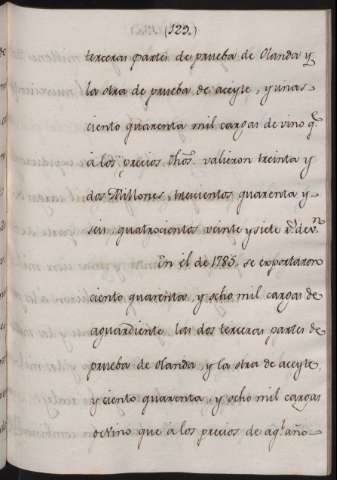 (123.)
terceras partes de prueba de Olanda y
la otra de prueba de aceyte, y unas
ciento quarenta mil cargas de vino q.e
á los precios dhos. valieron treinta y
dos Millones, trescientos quarenta y
seis, quatrocientos veinte y siete r.s de v.n
En el de 1785. se exportaron
ciento quarenta, y ocho mil cargas de
aguardiente las dos terceras partes de
prueba de olanda, y la otra de aceyte,
y ciento quarenta, y ocho mil cargas
de Vino que á los precios de aq.l año